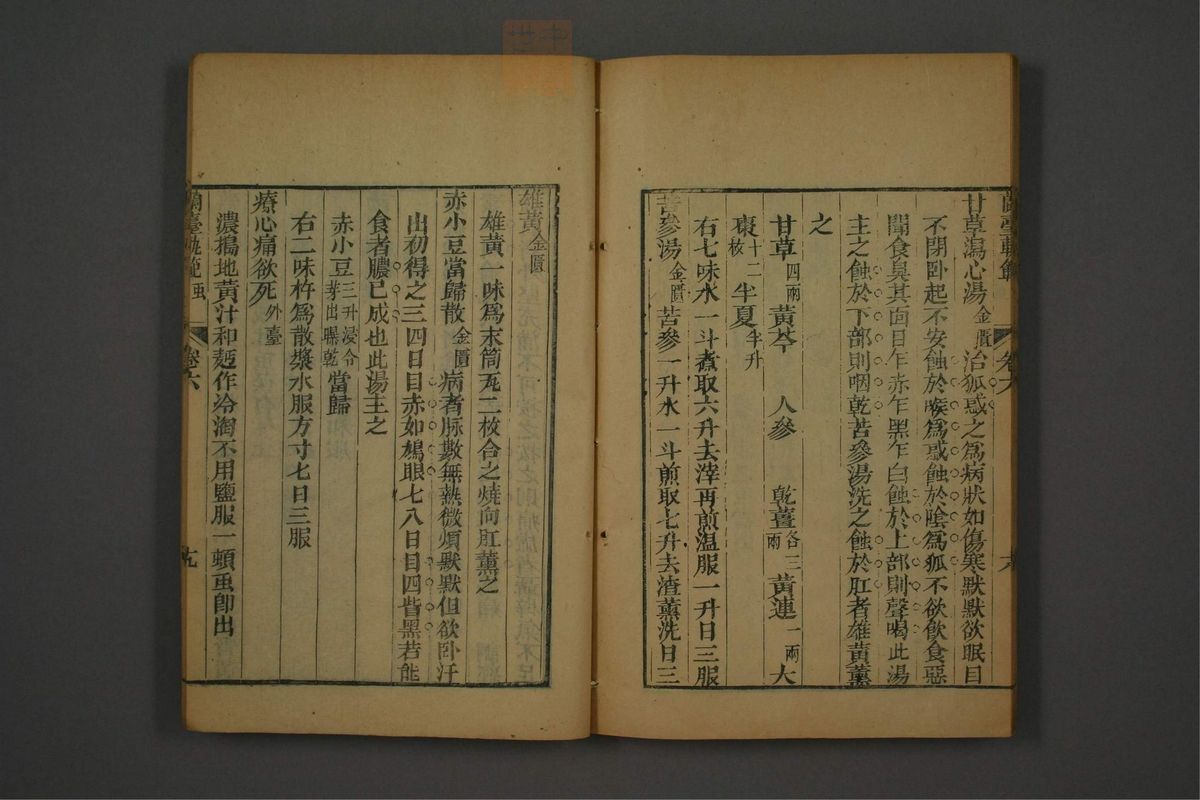 蘭臺軌範 卷六 十八
甘草瀉心湯金匱治狐惑之為病狀如傷寒默默欲眠目
不閉卧起不安蝕於喉為惑蝕於陰為狐不欲飲食惡
聞食臭其面目乍赤乍黑乍白蝕於上部則聲喝此湯
主之蝕於下部則咽乾苦參湯洗之蝕於肛者雄黃薰
之
甘草四兩 黃芩 人參 乾薑各三兩 黃連一兩 大
棗十二枚 半夏半升
右七味水一斗煮取六升去滓再煎溫服一升日三服
苦參湯金匱苦參一升水一斗煎取七升去渣薰洗日三
雄黃金匱
雄黃一味為末筒瓦二枚合之燒向肛薰之
赤小豆當歸散金匱病者脉數無熱微煩默默但欲卧汗
出初得之三四日目赤如鳩眼七八日目四眥黑若能
食者膿已成也此湯主之
赤小豆三升浸令芽出曝乾 當歸
右二味杵為散漿水服方寸七日三服
療心痛欲死外臺
濃搗地黃汁和麪作冷淘不用鹽服一頓虫即出
蘭臺軌範 虫 卷六 十九